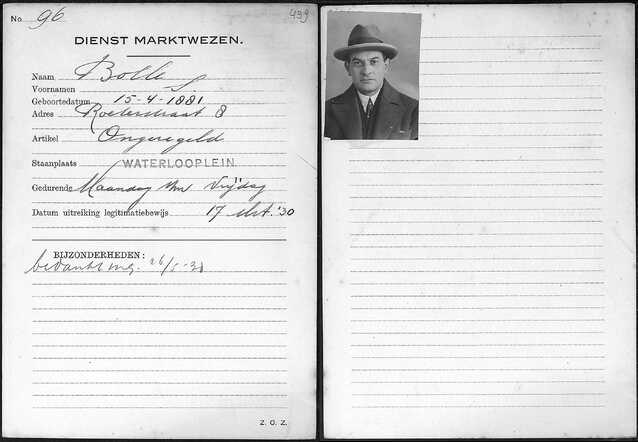 No 96
439
DIENST MARKTWEZEN.
Naam Bolle
Voornamen S.
Geboortedatum 15-4-1881
Adres Roetersstraat 8
Artikel Ongeregeld
Staanplaats WATERLOOPLEIN.
Gedurende Maandag t/m Vrijdag
Datum uitreiking legitimatiebewijs 17 '30
BIJZONDERHEDEN:
bedankt 26/5-31
Z. O. Z.